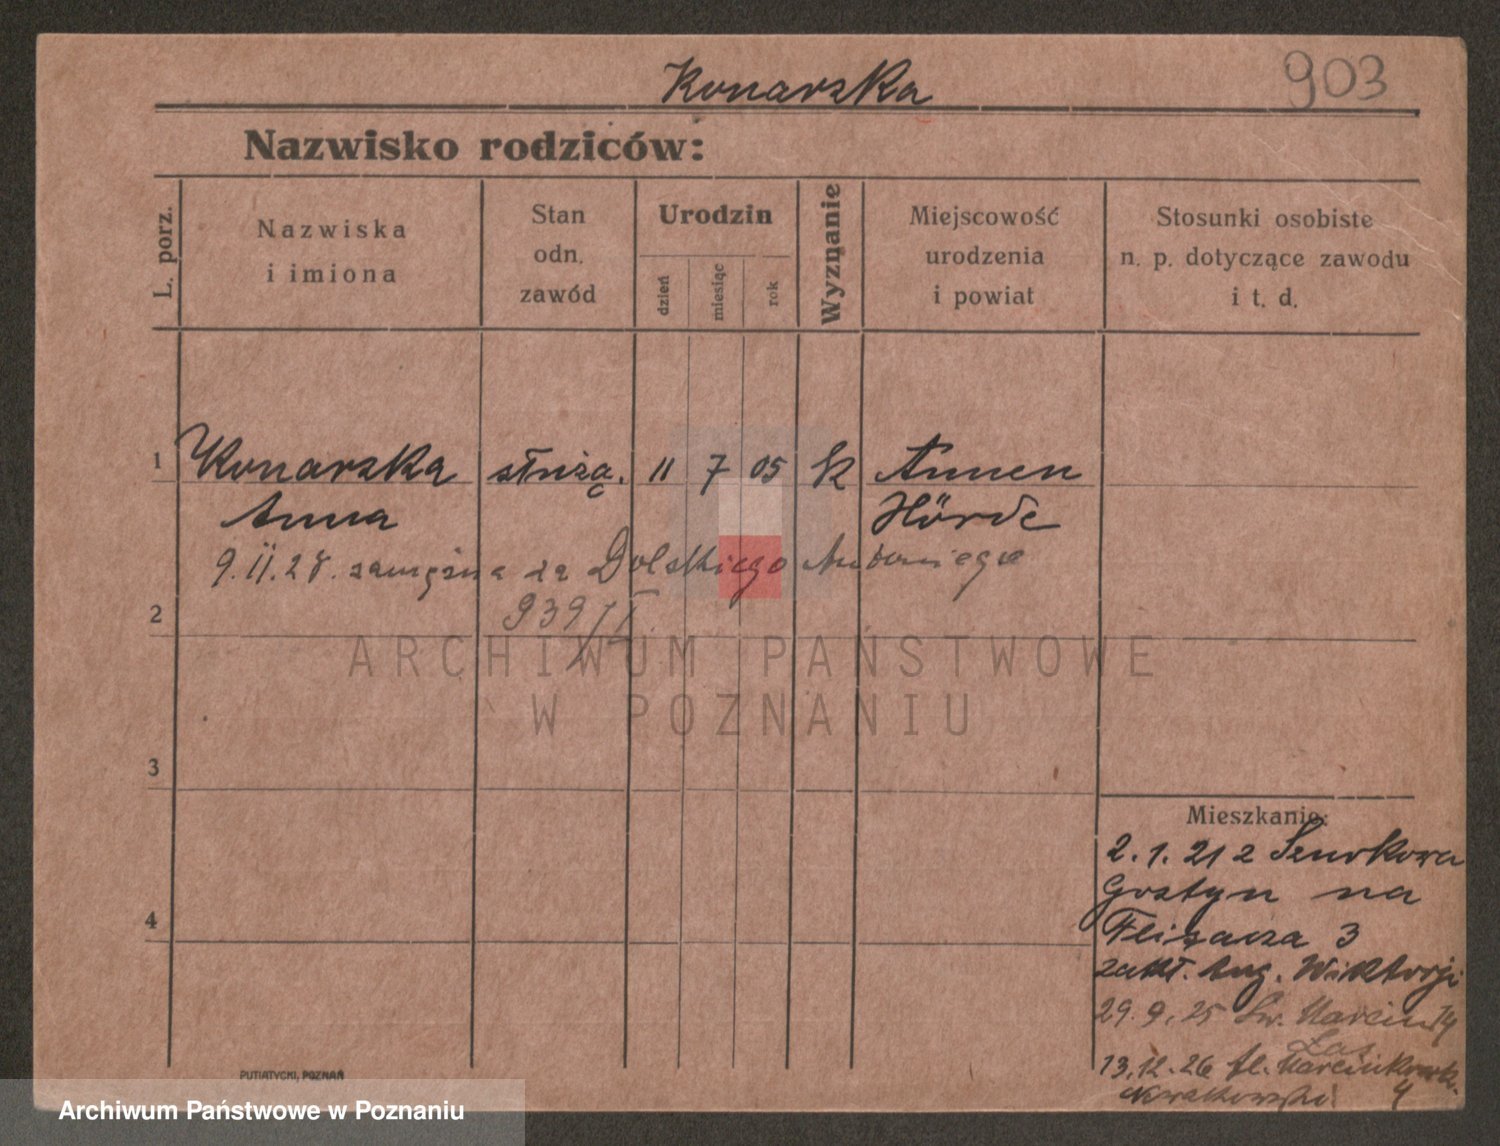 Konarska
903
Nazwisko rodziców:
L. porz.
Nazwiska
i imiona
Stan
odn.
zawód
Urodzin
dzień
miesiąc
rok
Wyznanie
Miejscowość
urodzenia
i powiat
Stosunki osobiste
n. p. dotyczące zawodu
i t. d.
1 Konarska służąc. 11 7 05 k Annen
Anna Hörde
9.II.28. zamężna za Dolskiego Antoniego
939/I
2
ARCHIWUM PAŃSTWOWE
W POZNANIU
3
Mieszkanie:
2.1.21 z Szurkowa
Gostyn na
Flisacza 3
4
zakł. Aug. Wiktorji
29.9.25 Św. Marcin 74
13.12.26 Al. Marcinkowsk.
4
PUTIATYCKI, POZNAŃ
Archiwum Państwowe w Poznaniu